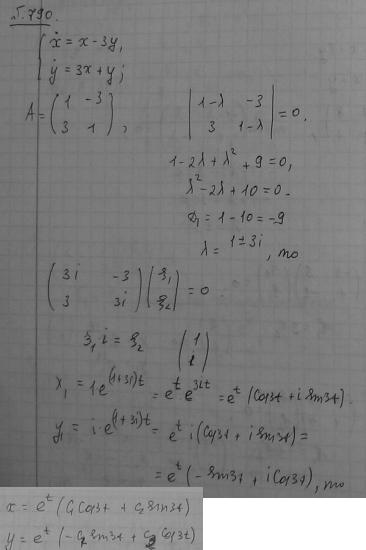 №790.
{ ẋ = x - 3y,
ẏ = 3x + y;
A = ( 1 -3
3 1 ), | 1-λ -3
3 1-λ | = 0.
1 - 2λ + λ² + 9 = 0,
λ² - 2λ + 10 = 0.
D₁ = 1 - 10 = -9
λ = 1 ± 3i, то
( 3i -3
3 3i ) ( ξ₁
ξ₂ ) = 0
ξ₁ i = ξ₂ ( 1
i )
x₁ = 1e^(1+3i)t = e^t e^3it = e^t (cos3t + i sin3t).
y₁ = i·e^(1+3i)t = e^t i(cos3t + i sin3t) =
= e^t (-sin3t + i cos3t), то
x = e^t (C₁cos3t + C₂sin3t)
y = e^t (-C₁sin3t + C₂cos3t)